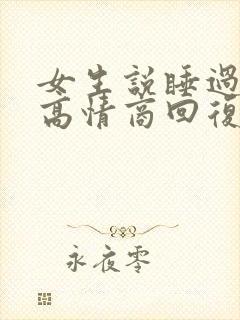 女生說睡過
高情商回復
永夜零